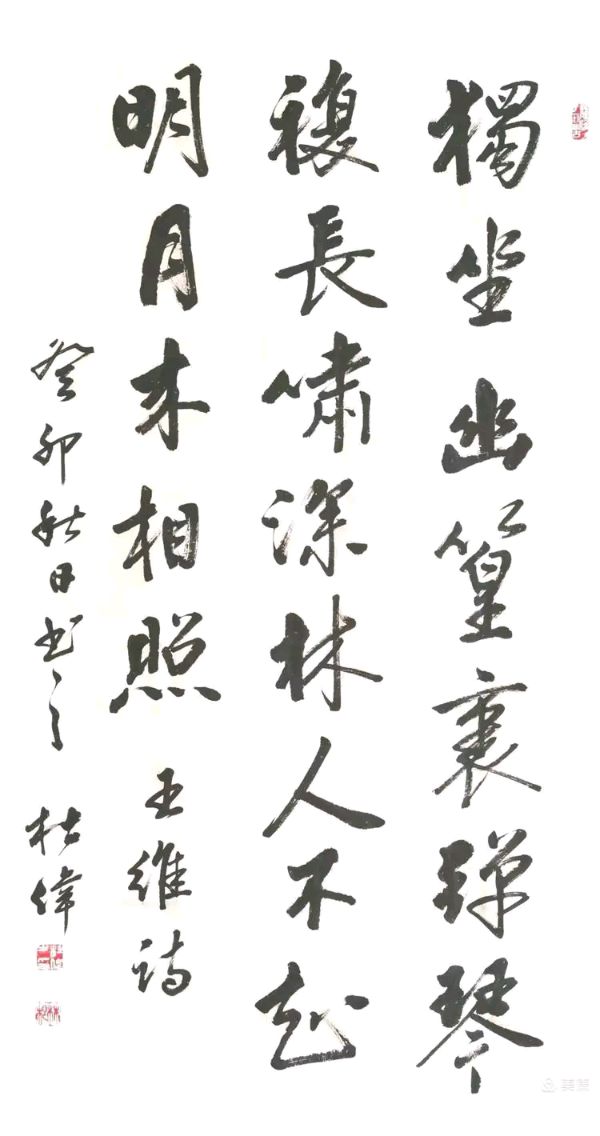 獨坐幽篁裏彈琴
複長嘯深林人不知
明月来相照 王維詩
癸卯秋日书之 杜偉
美篇